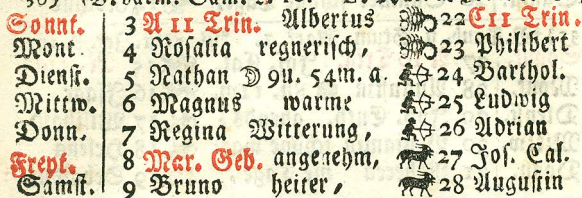 Sonnt. 3 A 11 Trin. Albertus 22 C 11 Trin.
Mont 4 Rosalia regnerisch, 23 Philibert
Dienst. 5 Nathan ☽ 9 u. 54 m. a. 24 Barthol.
Mittw. 6 Magnus warme 25 Ludwig
Donn. 7 Regina Witterung, 26 Adrian
Freyt. 8 Mar. Geb. angenehm, 27 Jos. Cal.
Samst. 9 Bruno heiter, 28 Augustin